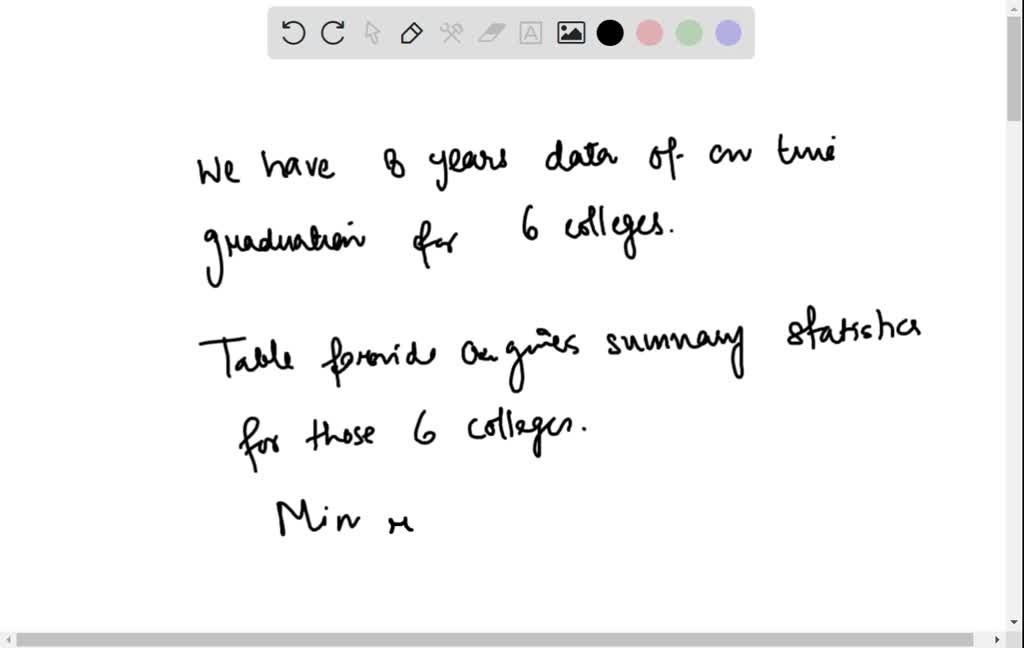 We have 8 years data of on time
graduation for 6 colleges.
Table provide or gives summary statistics
for those 6 colleges.
Min